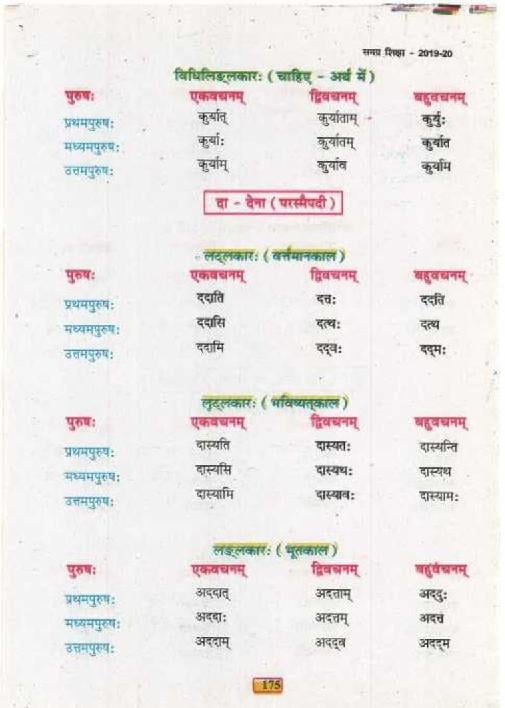 समग्र शिक्षा - 2019-20
विधिलिङ्लकारः ( चाहिए - अर्थ में )
पुरुषः एकवचनम् द्विवचनम् बहुवचनम्
प्रथमपुरुषः कुर्यात् कुर्याताम् कुर्युः
मध्यमपुरुषः कुर्याः कुर्यातम् कुर्यात
उत्तमपुरुषः कुर्याम् कुर्याव कुर्याम
दा - देना ( परस्मैपदी )
- लट्लकारः ( वर्त्तमानकाल )
पुरुषः एकवचनम् द्विवचनम् बहुवचनम्
प्रथमपुरुषः ददाति दत्तः ददति
मध्यमपुरुषः ददासि दत्थः दत्थ
उत्तमपुरुषः ददामि दद्वः दद्मः
लृट्लकारः ( भविष्यत्काल )
पुरुषः एकवचनम् द्विवचनम् बहुवचनम्
प्रथमपुरुषः दास्यति दास्यतः दास्यन्ति
मध्यमपुरुषः दास्यसि दास्यथः दास्यथ
उत्तमपुरुषः दास्यामि दास्यावः दास्यामः
लङ्लकारः ( भूतकाल )
पुरुषः एकवचनम् द्विवचनम् बहुवचनम्
प्रथमपुरुषः अददात् अदत्ताम् अददुः
मध्यमपुरुषः अददाः अदत्तम् अदत्त
उत्तमपुरुषः अददाम् अदद्व अदद्म
175